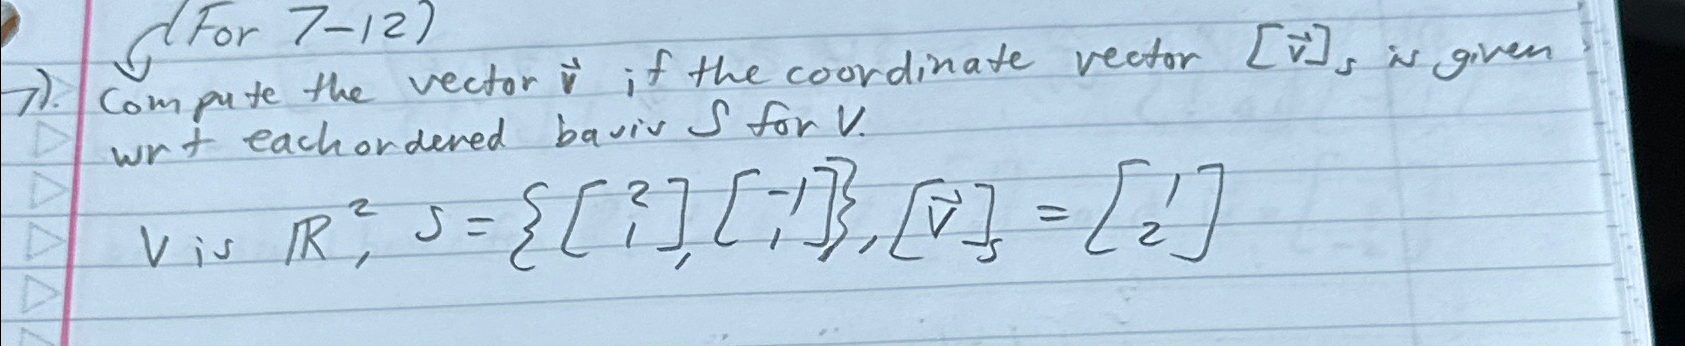 (For 7-12)
7). Compute the vector v⃗ if the coordinate vector [v⃗]ₛ is given
wrt each ordered basis S for V.
V is ℝ², S = {[2 1], [-1 1]}, [v⃗]ₛ = [1 2]